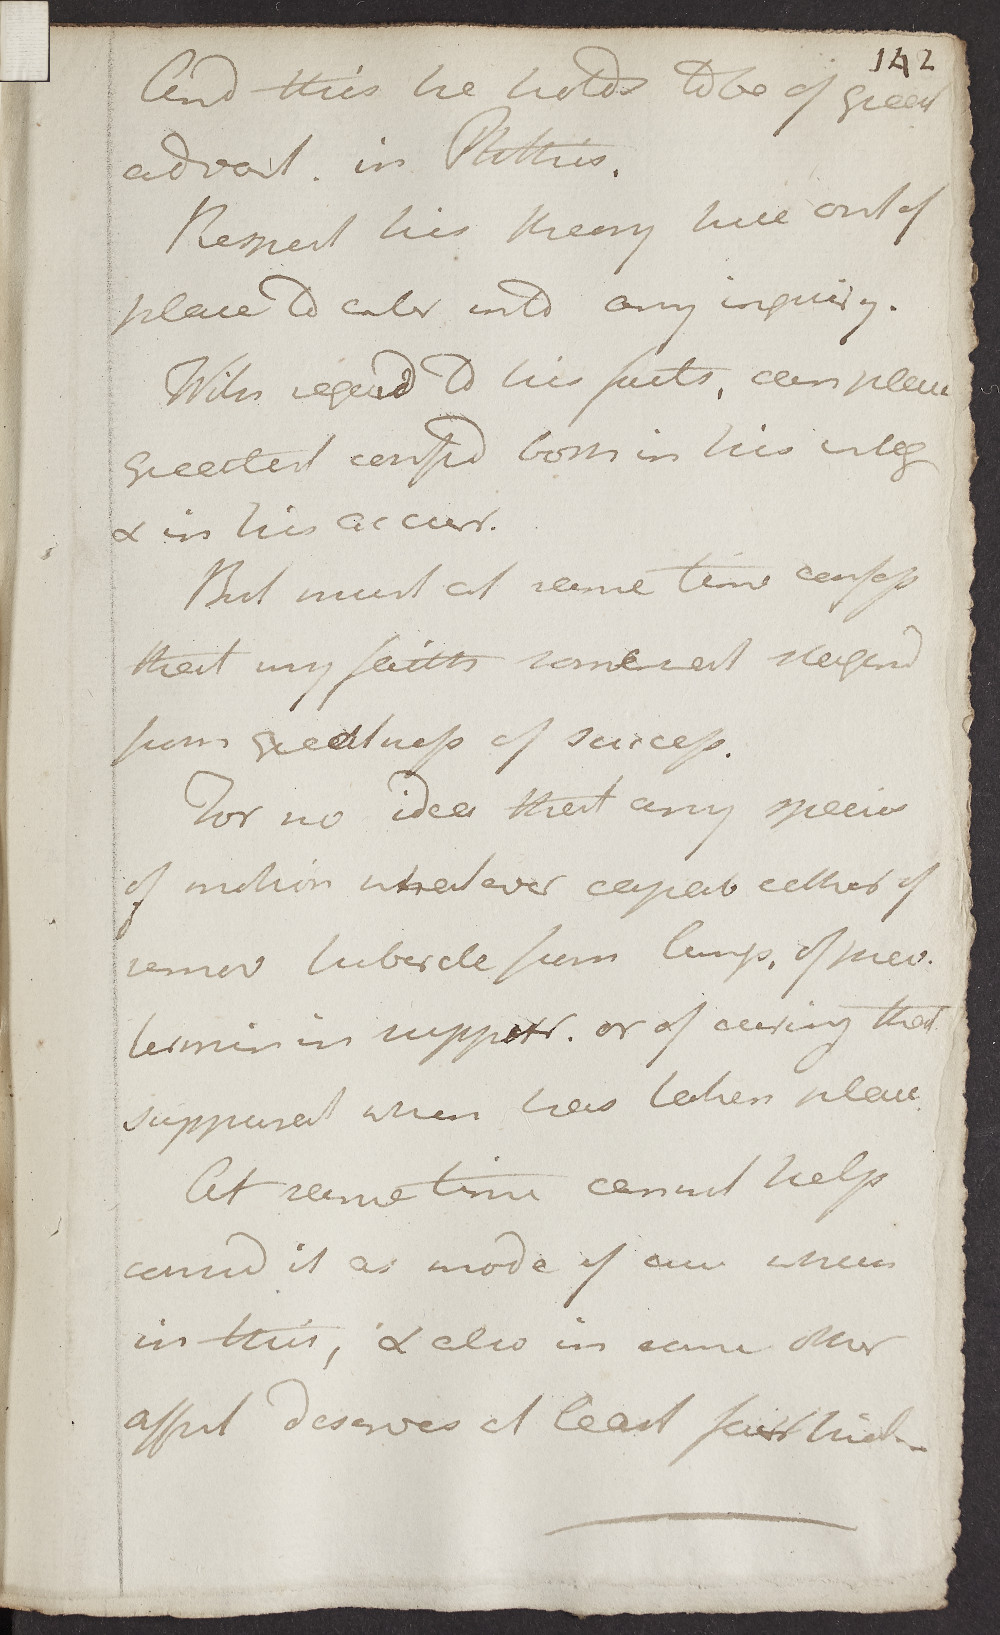 142
And this he holds to be of great
advant. in Phthis.
Respect his theory here out of
place to enter into any inquiry.
With regard to his facts, can place
greatest confid both in his integ
& in his accur.
But must at same time confess
that my faith somewhat stagerd
from greatness of success.
For no idea that any species
of motion whatever capab either of
remov tubercle from lungs, of prev.
termin in suppur. or of curing that
suppurat when has taken place
At same time cannot help
consid it as mode of cure which
in this, & also in some other
affect deserves at least fair trial.